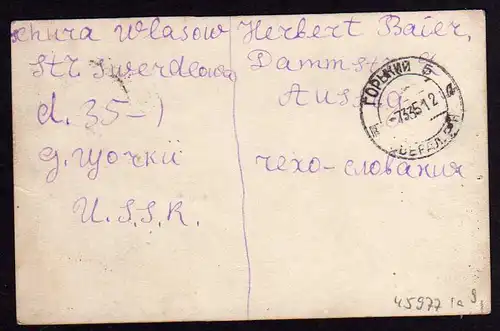 schura Wlasow
Str. Swerdlowa
d. 35-1
g. Горький
U.S.S.R.
Herbert Baier,
Dammstr. 9
Aussig
чехо-словакия
ГОРЬКИЙ 5
733512
45977 1a 9